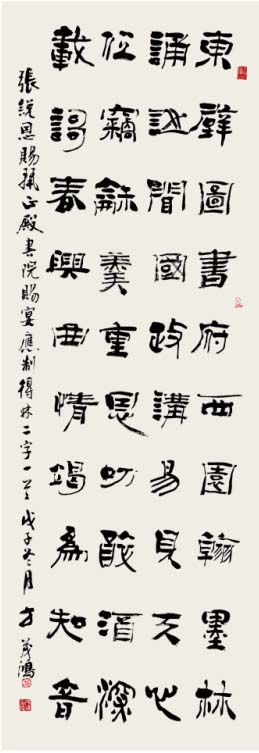 東壁圖書府西園翰墨林
誦詩聞國政講易見天心
位竊龢羹重恩叨醉酒深
載謌春興曲情竭為知音
張說恩賜麗正殿書院賜宴應制得林二字一首 戊子冬月 方鴻